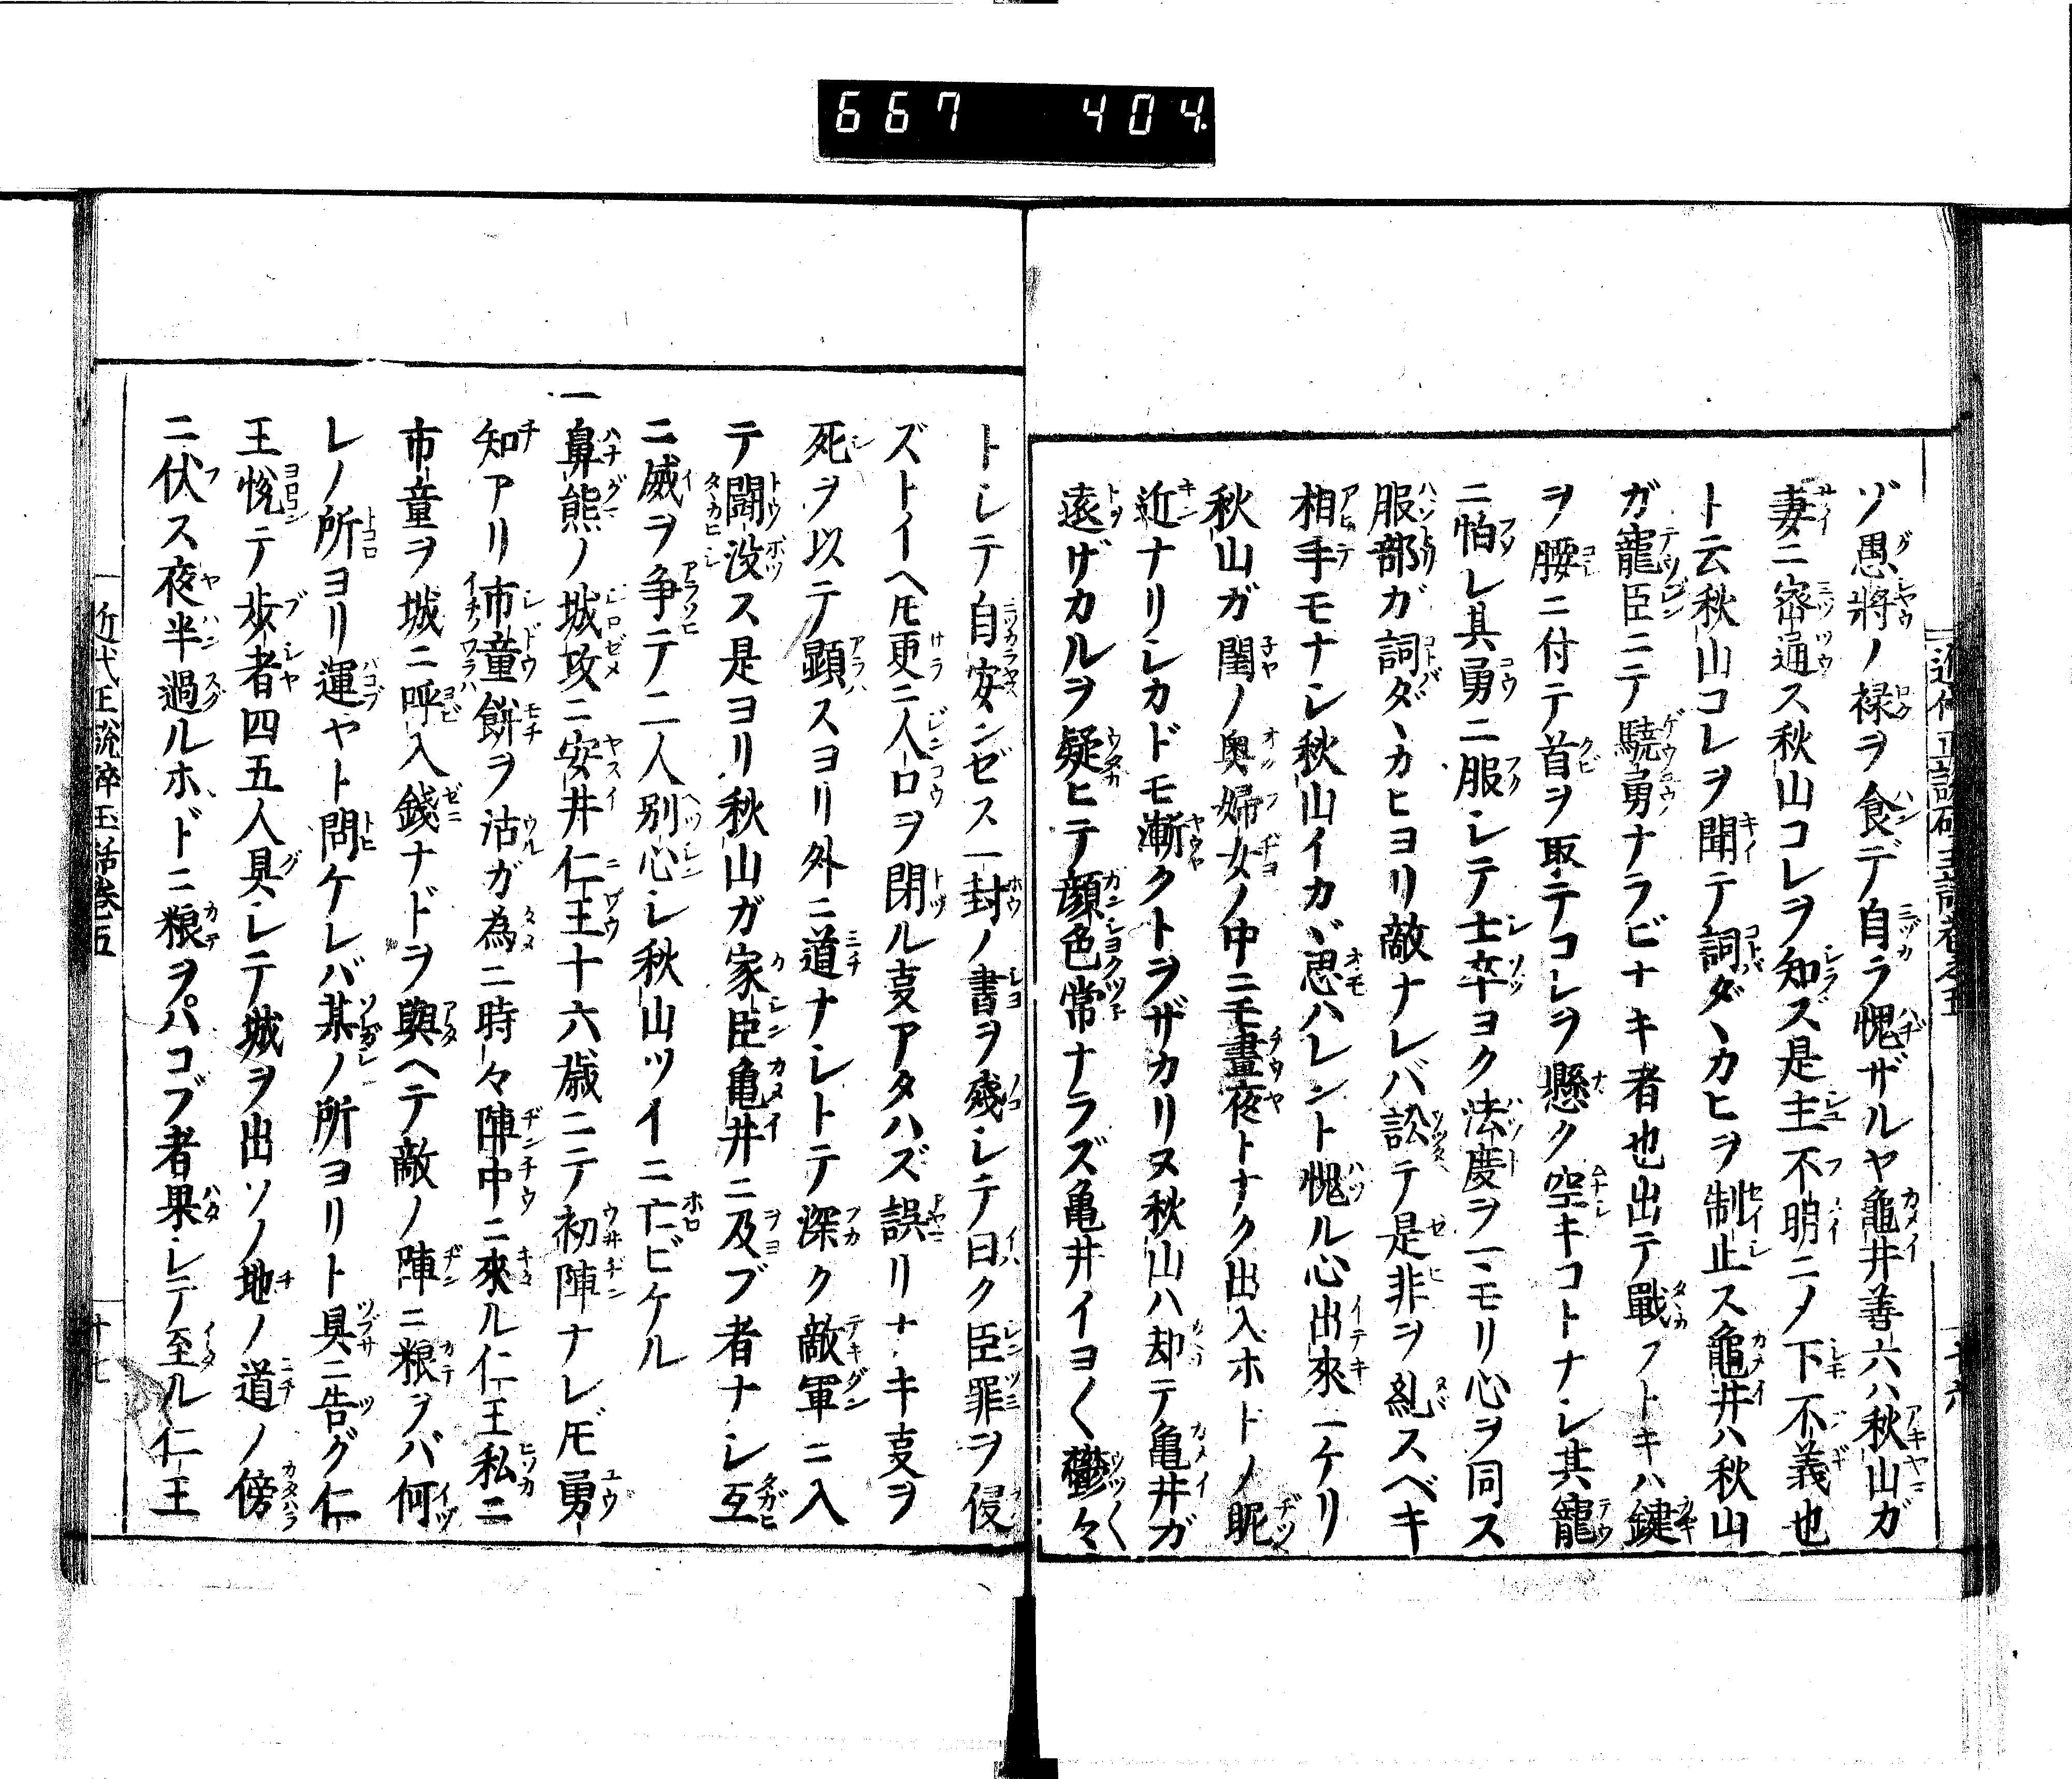 667 404
ゾ愚將ノ禄ヲ食デ自ラ愧ザルヤ龜井善六ハ秋山ガ
妻ニ密通ス秋山コレヲ知ズ是主不明ニメ下不義也
ト云秋山コレヲ聞テ詞ダヽカヒヲ制止ス龜井ハ秋山
ガ寵臣ニテ驍勇ナラビナキ者也出テ戰フトキハ鍵
ヲ腰ニ付テ首ヲ取テコレヲ懸ク空キコトナシ其寵
ニ怕レ其勇ニ服シテ士卒ヨク法度ヲマモリ心ヲ同ス
服部ガ詞ダヽカヒヨリ敵ナレバ訟テ是非ヲ糺スベキ
相手モナシ秋山イカヾ思ハレント愧ル心出來ニケリ
秋山ガ閨ノ奥婦女ノ中ニモ晝夜トナク出入ホドノ昵
近ナリシカドモ漸クトヲザカリヌ秋山ハ却テ亀井ガ
遠ザカルヲ疑ヒテ顔色常ナラズ亀井イヨ〱鬱々
トシテ自安ンゼス一封ノ書ヲ殘シテ曰ク臣罪ヲ侵
ズトイヘ𪜈更ニ人口ヲ閉ル叓アタハズ誤リナキ叓ヲ
死ヲ以テ顕スヨリ外ニ道ナシトテ深ク敵軍ニ入
テ闘没ス是ヨリ秋山ガ家臣亀井ニ及ブ者ナシ互
ニ威ヲ争テ二人別心シ秋山ツイニ亡ビケル
一鼻熊ノ城攻ニ安井仁王十六歳ニテ初陣ナレ𪜈勇
知アリ市童餅ヲ沽ガ為ニ時々陣中ニ來ル仁王私ニ
市童ヲ城ニ呼入錢ナドヲ與ヘテ敵ノ陣ニ粮ヲバ何
レノ所ヨリ運ヤト問ケレバ某ノ所ヨリト具ニ告グ仁
王悦テ歩者四五人具シテ城ヲ出ソノ地ノ道ノ傍
ニ伏ス夜半過ルホドニ粮ヲハコブ者果シテ至ル仁王
近代正説碎玉話巻五
十七